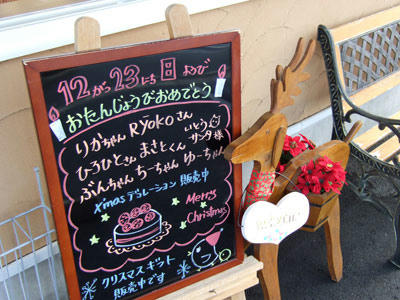 12がつ23にち 日 および
おたんじょうびおめでとう
りかちゃん Ryokoさん
いとう
サンタ様
ひろひとさん まさとくん
ぶんちゃん ちーちゃん ゆーちゃん
Xmasデコレーション 販売中
Merry
Christmas
クリスマスギフト
販売中です